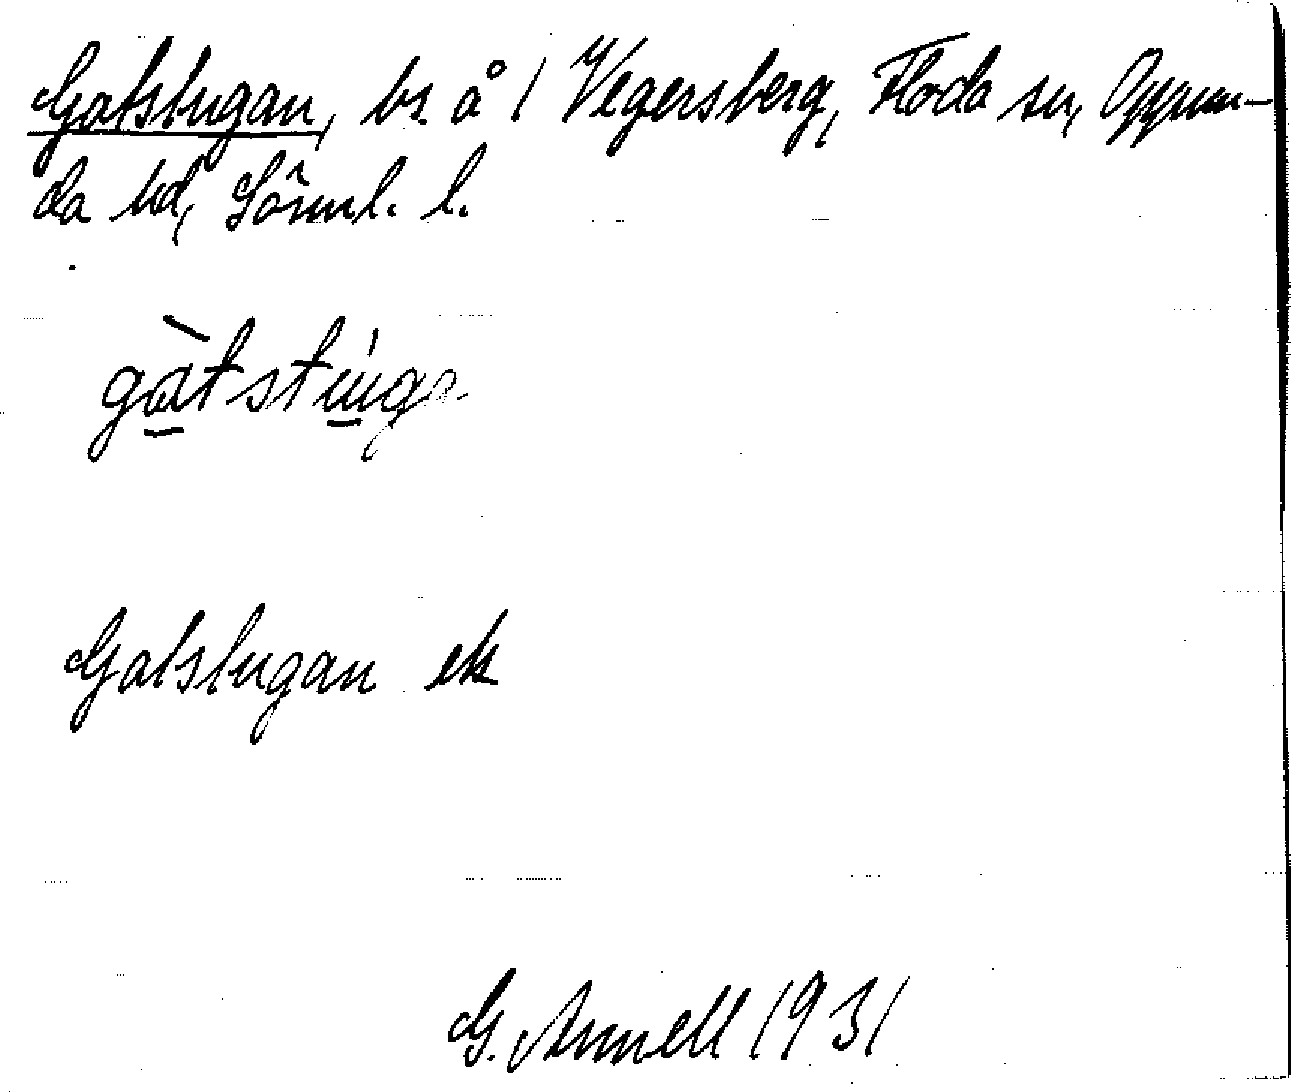 Gatstugan, bs. å 1 Vegersberg, Floda sn, Oppun-
da hd, Sörml. l.
gàtstùga
Gatstugan ek
G. Annell 1931